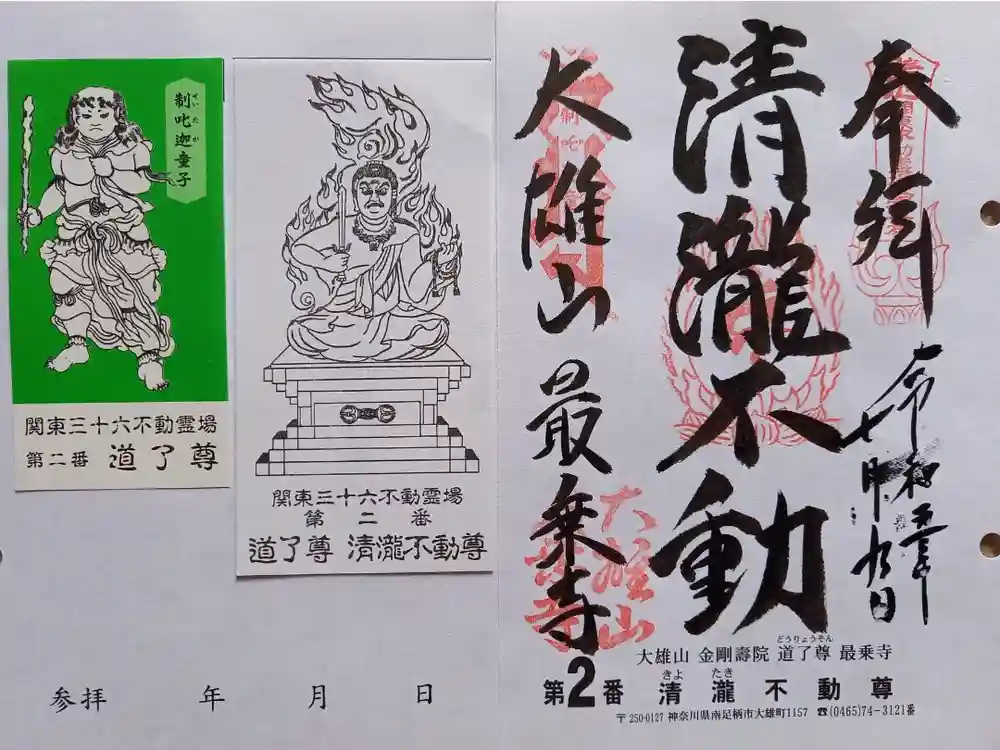 制吒迦童子
せいたか
関東三十六不動霊場
第二番 道了尊
関東三十六不動霊場
第二番
道了尊 清瀧不動尊
参拝 年 月 日
奉拝
令和五年
七月九日
清瀧不動
大雄山 最乗寺
大雄山
最乗寺
どうりょうそん
大雄山 金剛壽院 道了尊 最乗寺
きよ たき
第2番 清瀧不動尊
〒250-0127 神奈川県南足柄市大雄町1157 ☎(0465)74-3121番